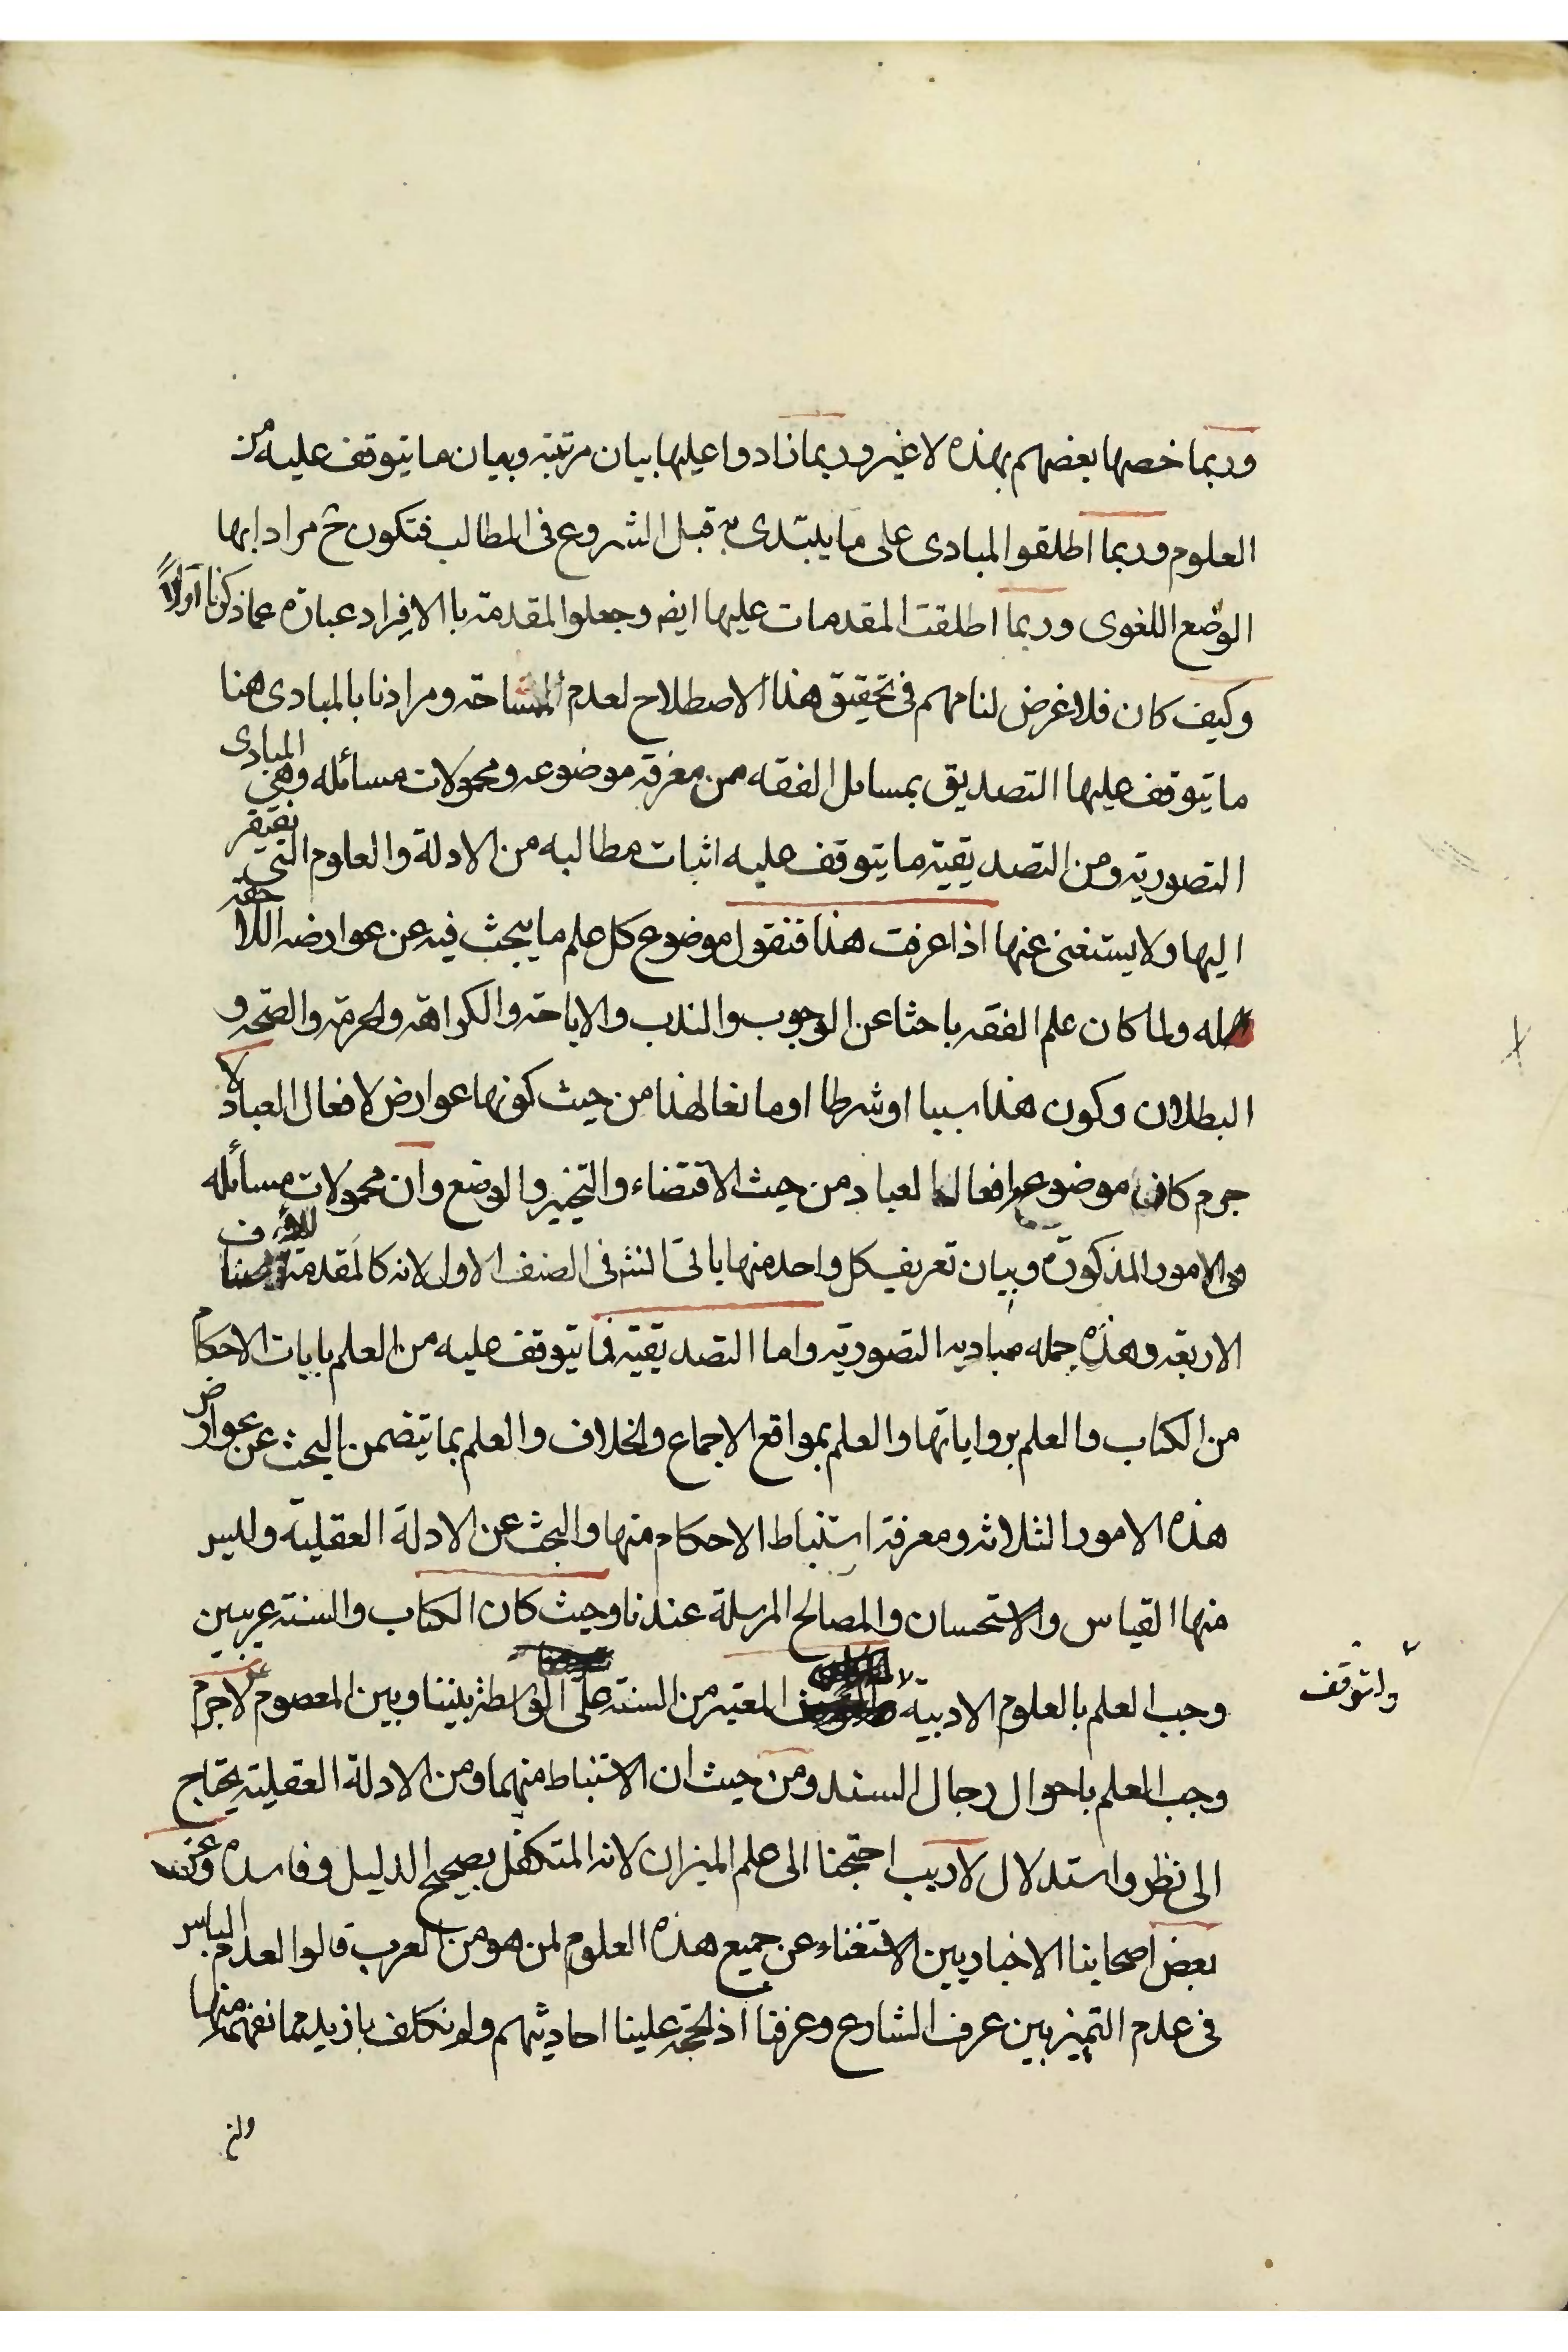 وربما خصها بعضهم بهذه لا غير وربما زادوا عليها بيان مرتبته وبيان ما يتوقف عليه من
العلوم وربما اطلقوا المبادى على ما يبتدى به قبل الشروع فى المطالب فتكون ح مرادا بها
الوضع اللغوى وربما اطلقت المقدمات عليها ايضه وجعلوا المقدمة باالافراد عبارة عما ذكرنا اولاً
وكيف كان فلا غرض لنا مهم فى تحقيق هذا الاصطلاح لعدم المشاحة ومرادنا بالمبادى هنا
ما يتوقف عليها التصديق بمسائل الفقه من معرفة موضوعه ومحمولات مسائله وهى المبادى
التصورية ومن التصديقية ما يتوقف عليه اثبات مطالبه من الادلة والعلوم التى يفتقر
اليها ولا يستغنى عنها اذا عرفت هذا فنقول موضوع كل علم ما يبحث فيه عن عوارضه اللاحقة
له ولما كان علم الفقه باحثا عن الوجوب والندب والاباحة والكراهة والحرمة والصحة و
البطلان وكون هذا سببا او شرطا او مانعا لهذا من حيث كونها عوارض لافعال العباد لا
جرم كان موضوعه افعال العباد من حيث الاقتضاء والتخيير والوضع وان محمولات مسائله
هى الامور المذكورة وبيان تعريف كل واحد منها ياتى انشه فى الصنف الاول لانه كالمقدمة
الاربعة وهذه جملة مباديه التصورية واما التصديقية فما يتوقف عليه من العلم بايات الاحكام
من الكتاب والعلم برواياتها والعلم بمواقع الاجماع والخلاف والعلم بما يتضمن البحث عن عوارض
هذه الامور الثلاثة ومعرفة استنباط الاحكام منها والبحث عن الادلة العقلية وليس
منها القياس والاستحسان والمصالح المرسلة عندنا وحيث كان الكتاب والسنة عربيين
وجب العلم بالعلوم الادبية ولتوقف المعتبر من السنة على الواسطة بيننا وبين المعصوم ع لاجرم
وجب العلم باحوال رجال السند ومن حيث ان الاستنباط منهما ومن الادلة العقلية يحتاج
الى نظر واستدلال لاريب احتجنا الى علم الميزان لانه المتكفل بصحيح الدليل وفاسده وعن
بعض اصحابنا الاخباريين الاستغناء عن جميع هذه العلوم لمن هو من العرب قالوا لعدم الباس
فى عدم التميز بين عرف الشارع وعرفنا اذ الحجة علينا احاديثهم ولم نكلف بازيد مما نفهم منها